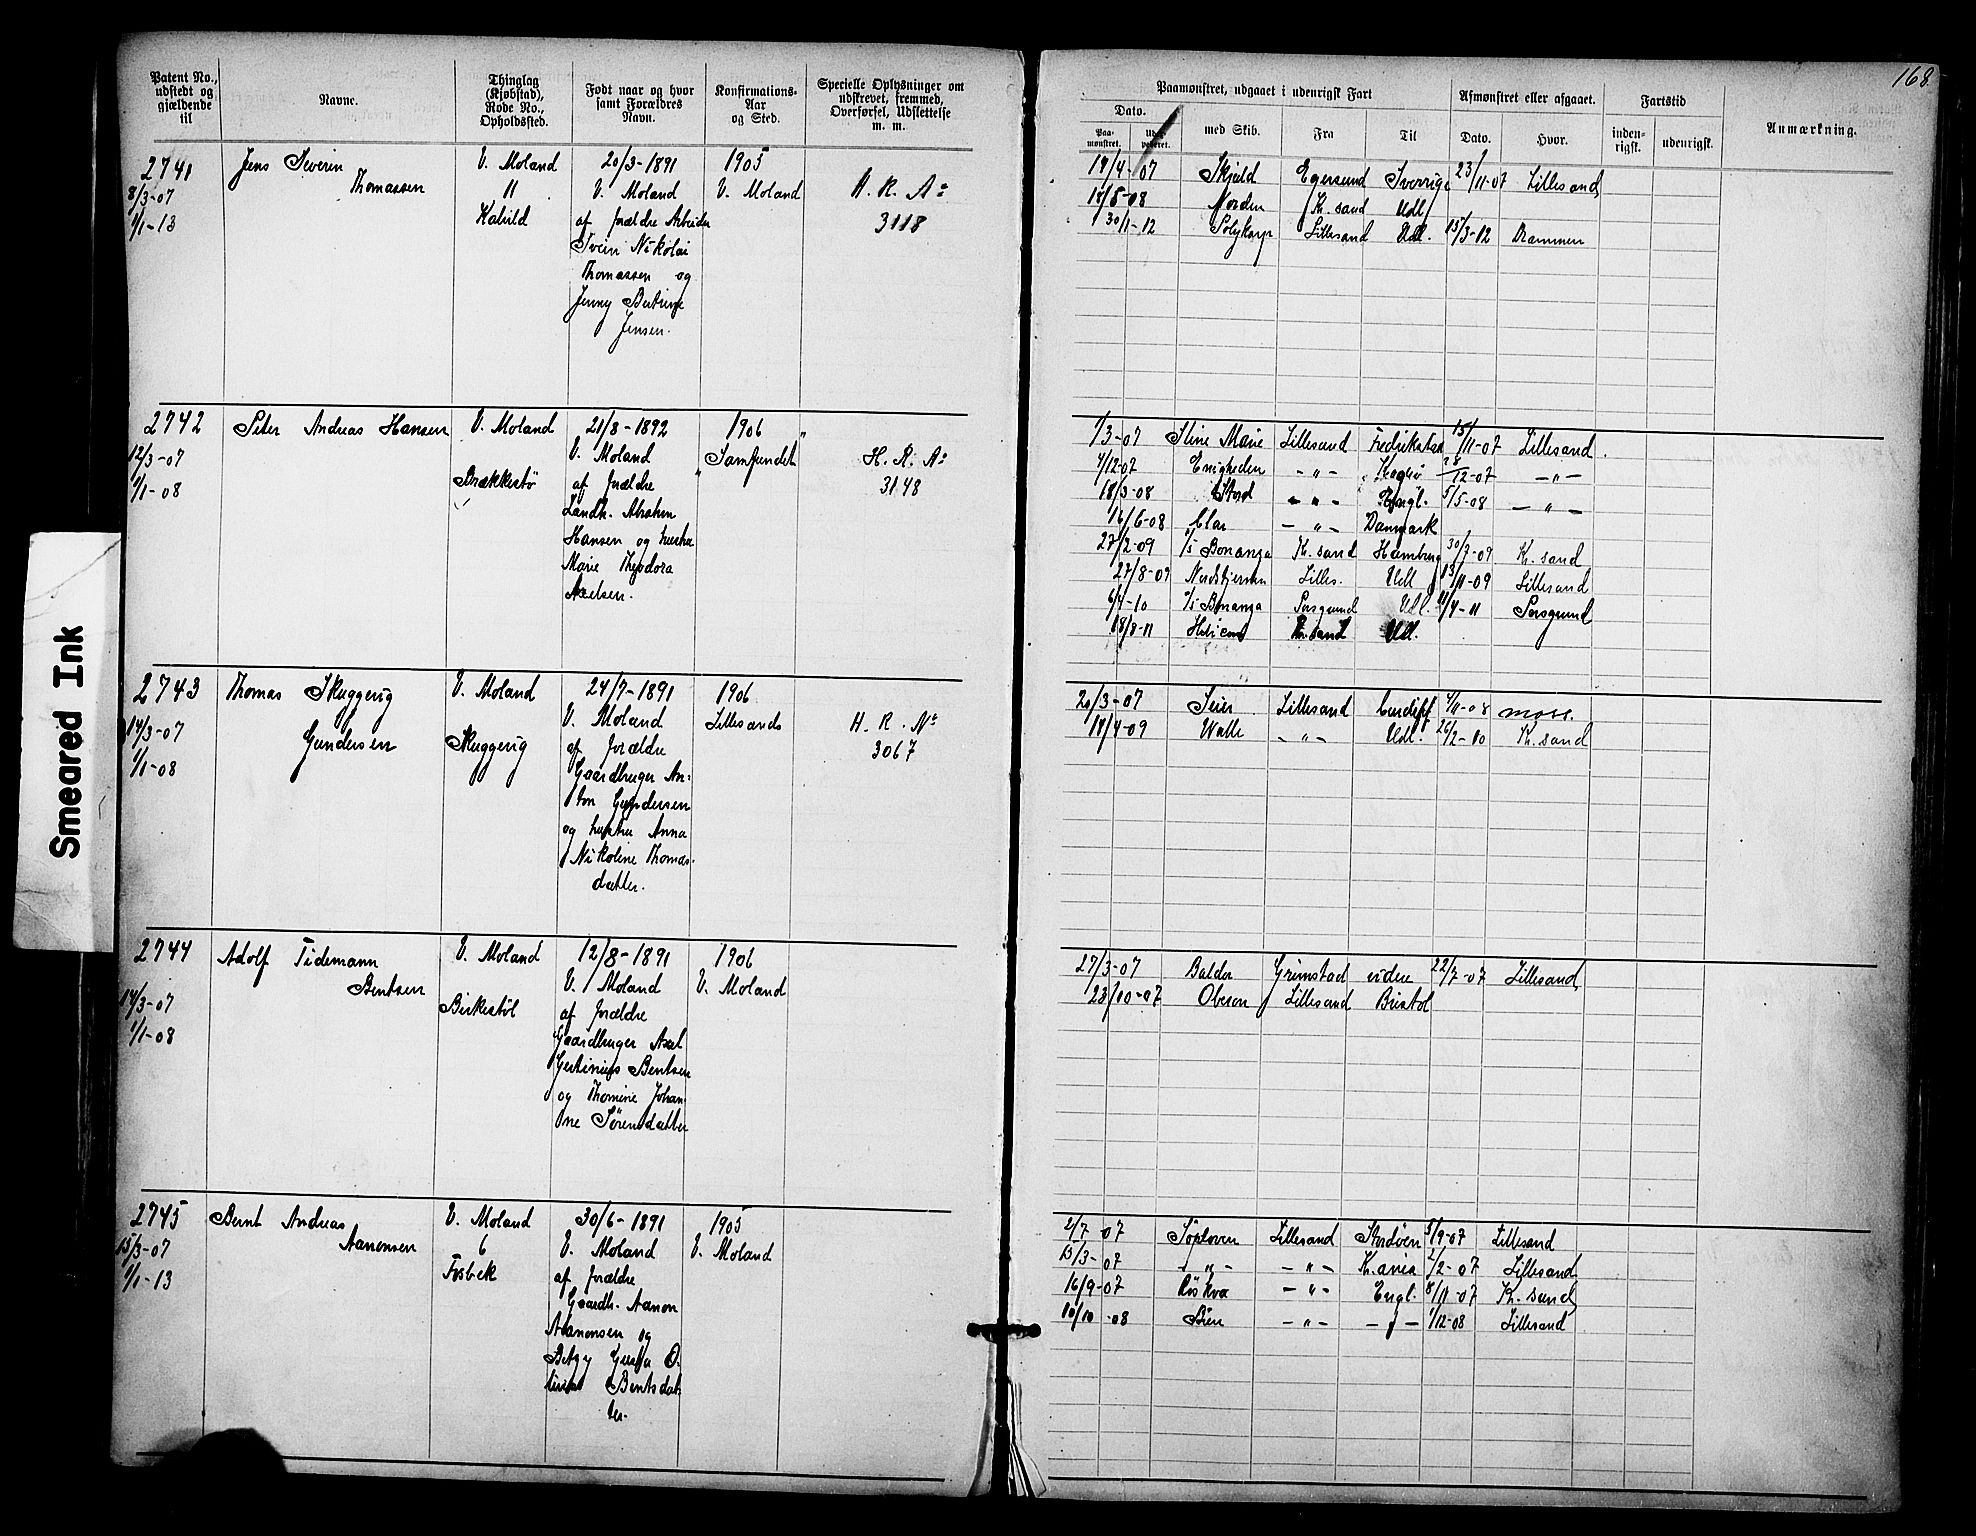 168
Patent No., udstedt og gjældende til
Navne.
Thinglag (Kjøbstad), Rode No., Opholdssted.
Født naar og hvor samt Forældres Navn.
Konfirmations-Aar og Sted.
Specielle Oplysninger om udskrevet, fremmed, Overførsel, Udslettelse m. m.
Paamønstret, udgaaet i udenrigsk Fart
Afmønstret eller afgaaet.
Fartstid
Anmærkning.
Dato.
Paa-mønstret.
med Skib.
Fra
Til
Dato.
Hvor.
inden-rigsk.
udenrigsk.
2741
8/3-07
1/1-13
Jens Severin
Thomassen
V. Moland
11
Kalvild
20/3-1891
V. Moland
af forældre Arbeider
Svein Nikolai
Thomassen og
Jenny Bertine
Jensen.
1905
V. Moland
3118
19/4-07 Skjold Egersund Sverrige 23/11-07 Lillesand
18/5-08 Norden Kr. sand Udl
30/1-12 Polykarp Lillesand Udl. 15/3-12 Drammen
2742
12/3-07
1/1-08
Peter Andreas Hansen
V. Moland
Brækkestø
21/8-1892
V. Moland
af forældre
Landh. Abraham
Hansen og hustru
Marie Theodora
Nielsen.
1906
Samfundet
H. R. No
3148
1/3-07 Stine Marie Lillesand Fredrikstad 15/11-07 Lillesand
4/12-07 Enigheden - " - 28/12-07 - " -
18/3-08 Stord - " - Engl. 5/5-08 - " -
16/6-08 - " - Danmark
27/2-09 Bonanza Kr. sand Hamburg 30/7-09 Kr. sand
27/8-09 Nordstjernen Lilles. Udl 13/11-09 Lillesand
6/4-10 Bonanza Porsgrund Udl. 4/4-11 Porsgrund
18/8-11 Kr. sand Udl.
2743
14/3-07
1/1-08
Thomas Skuggevig
Gundersen
V. Moland
Skuggevig
24/7-1891
V. Moland
af forældre
Gaardbruger An-
ton Gundersen
og hustru Anna
Nikoline Thomas-
datter.
1906
Lillesand
H. R. No
3067
20/3-07 Seier Lillesand Cardiff 4/11-08 Moss.
19/4-09 Walle - " - Udl. 26/2-10 Kr. sand
2744
14/3-07
1/1-08
Adolf Tidemann
Bentsen
V. Moland
Birkestøl
12/8-1891
V. Moland
af forældre
Gaardbruger Axel
Bentsen
og Thomine Johan-
ne Sørensdatter
1906
V. Moland
27/3-07 Balder Grimstad videre 22/7-07 Lillesand
23/10-07 Oberon Lillesand Bristol
2745
15/3-07
1/1-13
Bernt Andreas
Aanonsen
V. Moland
6
Fosbek
30/6-1891
V. Moland
af forældre
Gaardb. Aanon
Aanonsen og
Bentsdat-
ter.
1905
V. Moland
2/7-07 Søploven Lillesand 5/9-07 Lillesand
15/3-07 - " - - " - Kr. ania 2/2-07 Lillesand
16/9-07 Røskva - " - Engl. 8/11-07 Kr. sand
10/10-08 - " - - " - 1/12-08 Lillesand
Smeared Ink